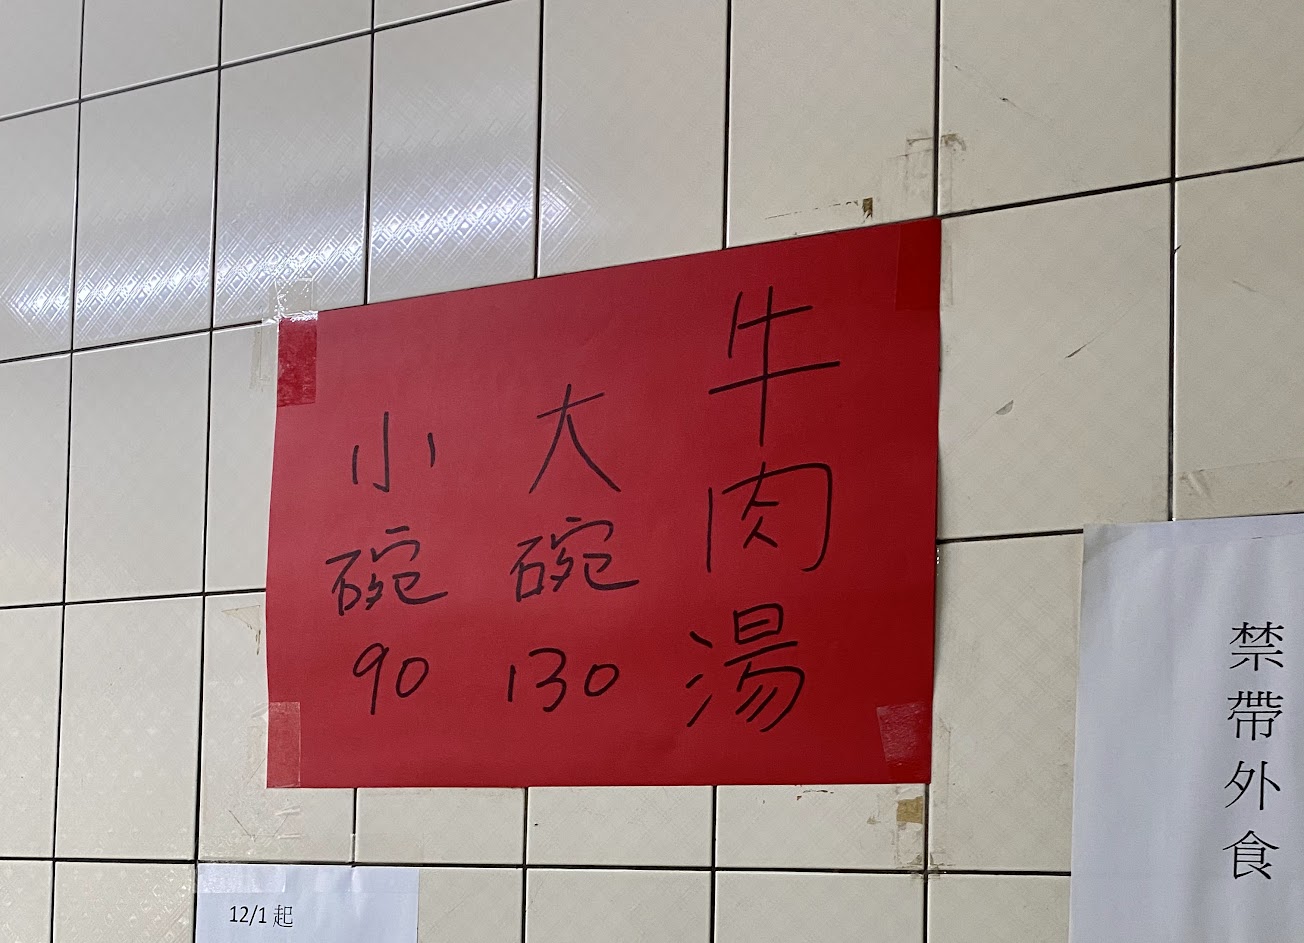 牛肉湯
大碗130
小碗90
禁帶外食
12/1 起